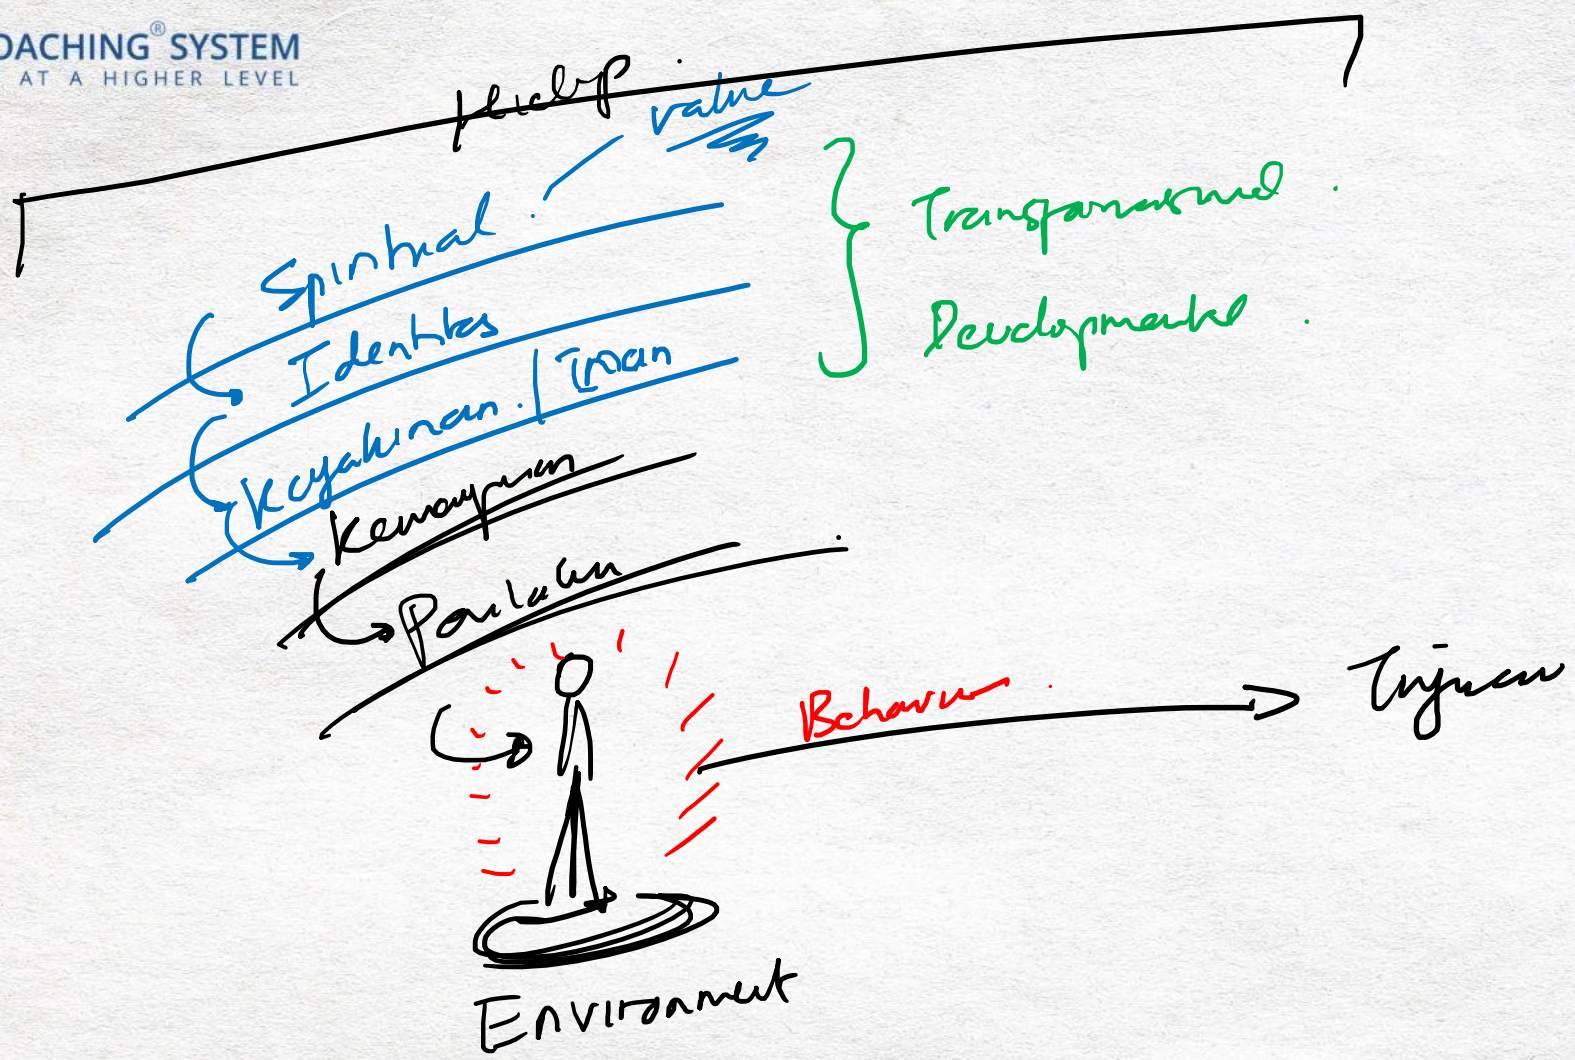 OACHING® SYSTEM
AT A HIGHER LEVEL
Hidup
value
Spiritual
Identitas
Keyakinan / Iman
Kemampuan
Perilaku
Transformasional
Developmental
Behaviour
Tujuan
Environment